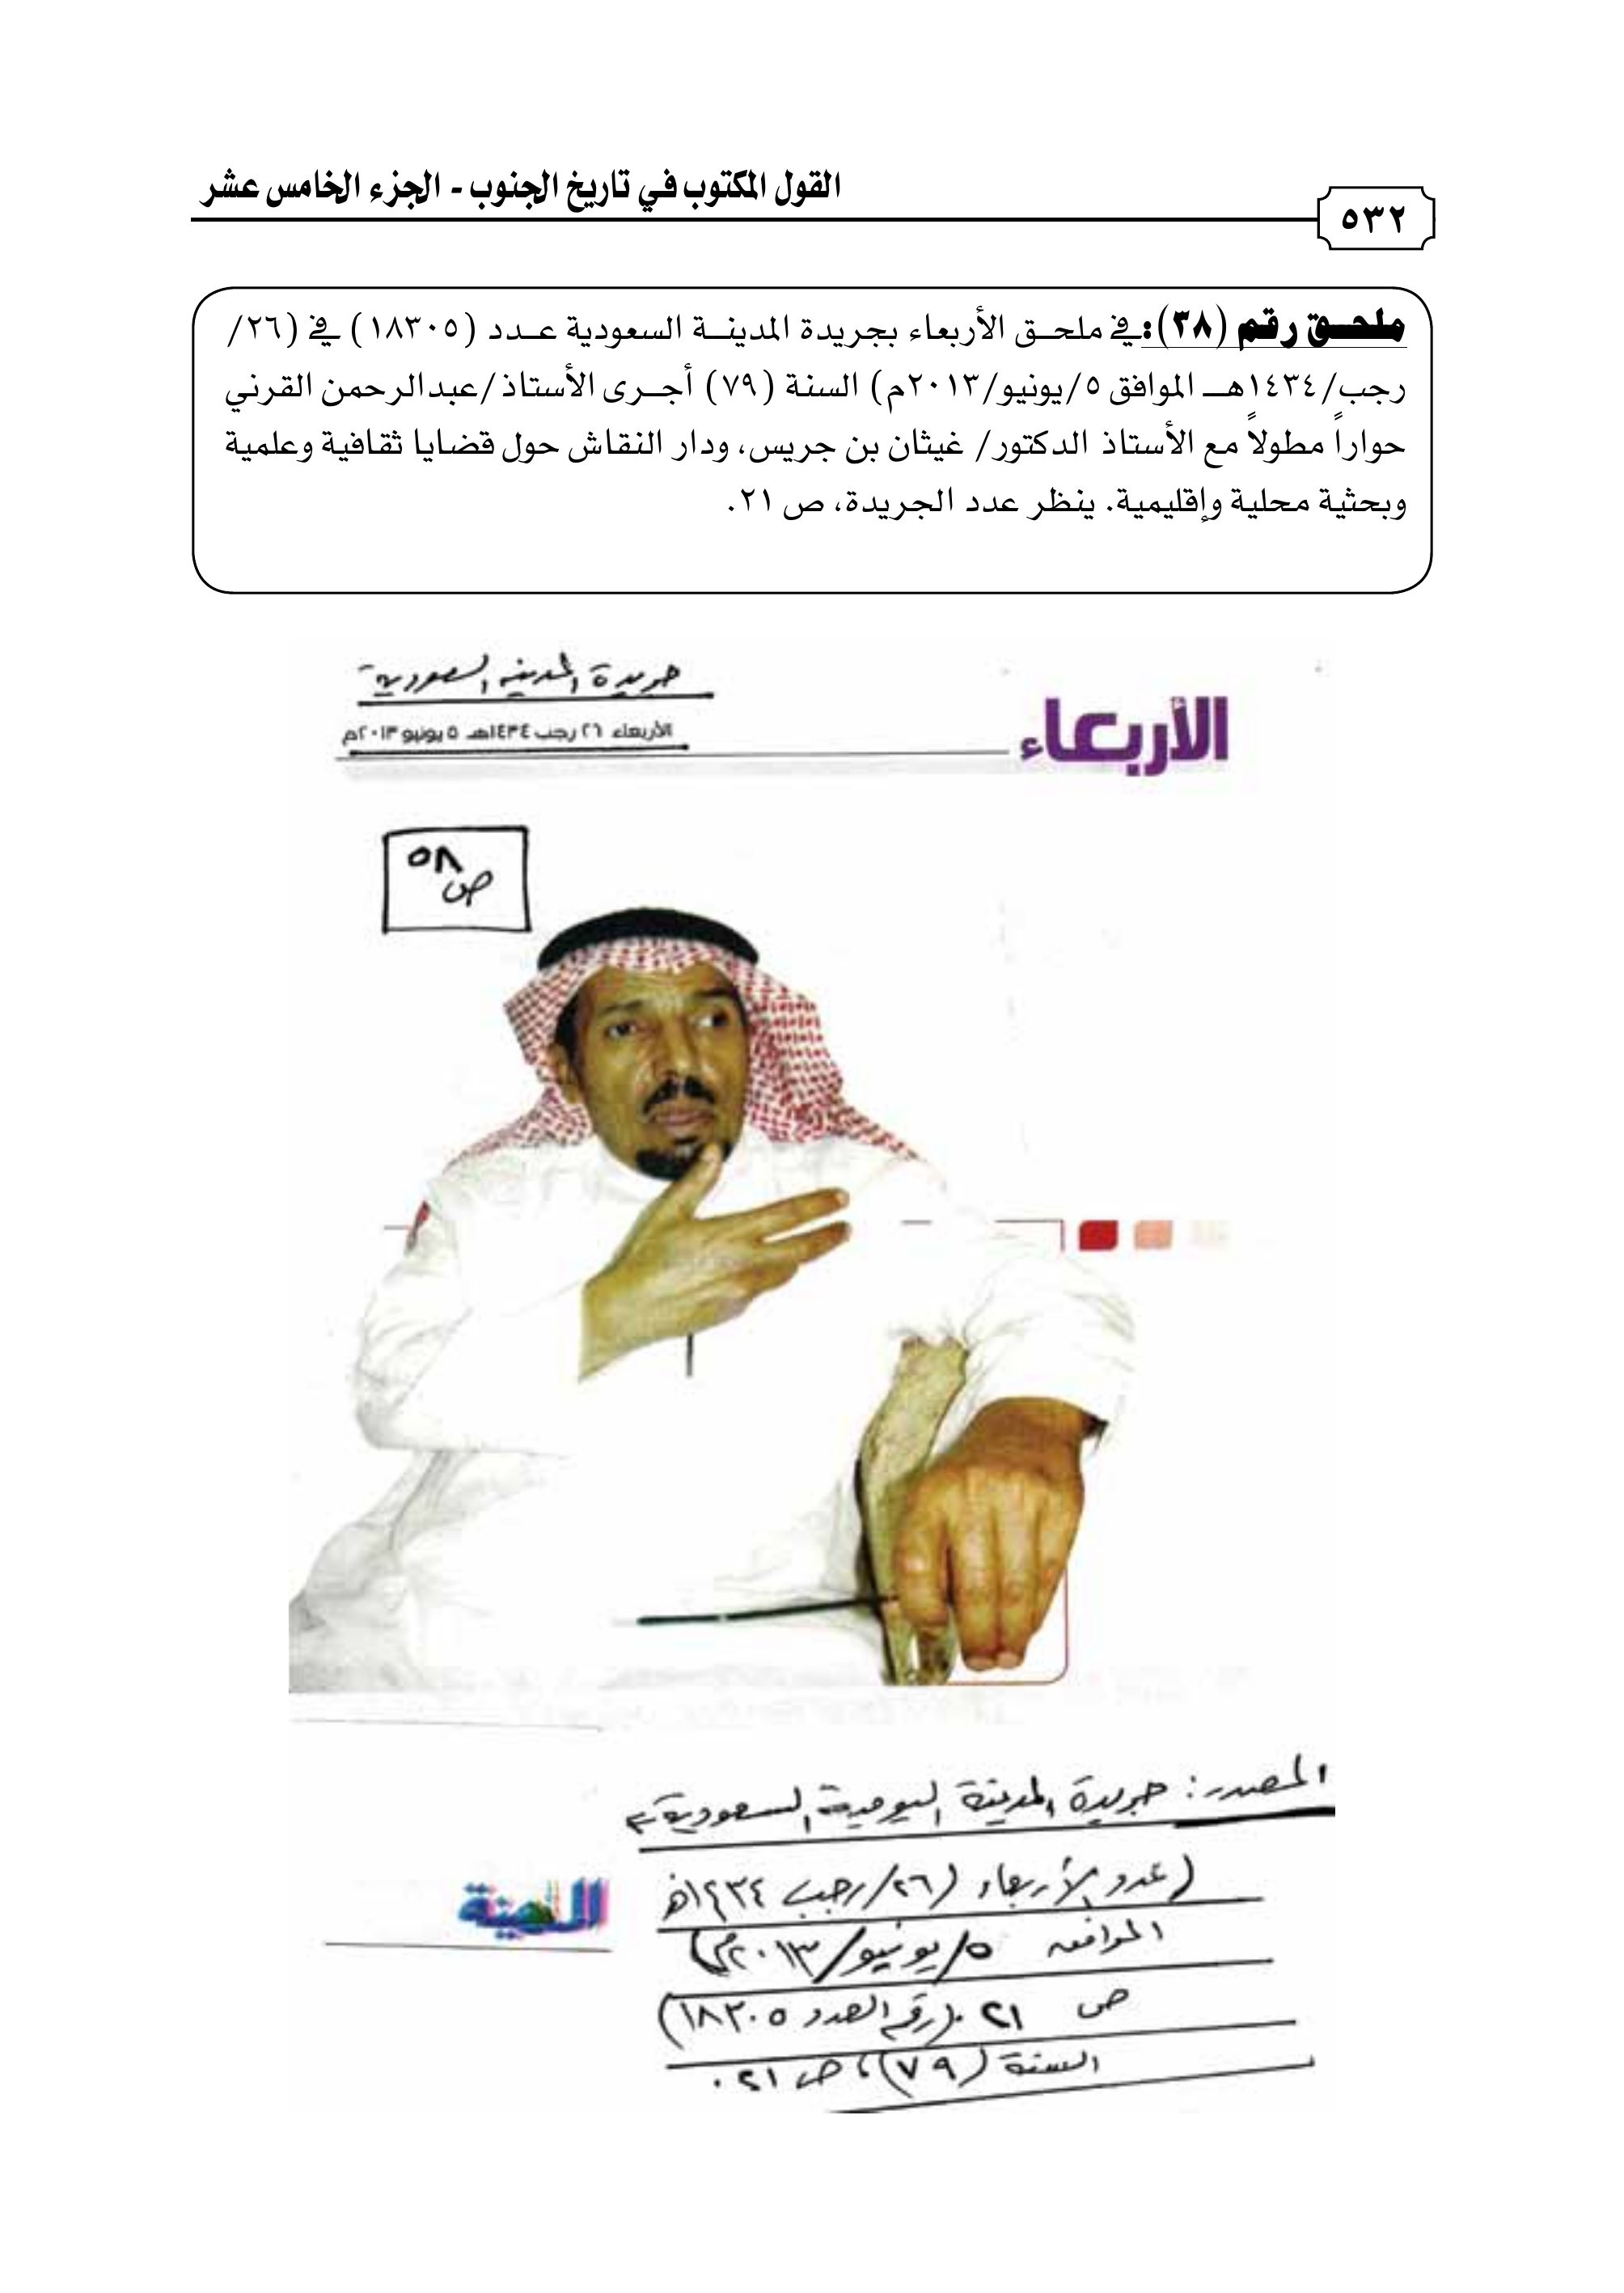 القول المكتوب في تاريخ الجنوب - الجزء الخامس عشر
٥٣٢
ملحق رقم (٣٨): في ملحق الأربعاء بجريدة المدينة السعودية عدد (١٨٣٠٥) في (٢٦/
رجب/١٤٣٤هـ الموافق ٥/يونيو/٢٠١٣م) السنة (٧٩) أجرى الأستاذ/عبدالرحمن القرني
حواراً مطولاً مع الأستاذ الدكتور/ غيثان بن جريس، ودار النقاش حول قضايا ثقافية وعلمية
وبحثية محلية وإقليمية. ينظر عدد الجريدة، ص ٢١.
جريدة المدينة السعودية
الأربعاء
الأربعاء ٢٦ رجب ١٤٣٤هـ ٥ يونيو ٢٠١٣م
٥٨
ص
المصدر: جريدة المدينة اليومية السعودية
(عدد الأربعاء (٢٦/رجب ١٤٣٤هـ
المدينة
الموافق ٥/يونيو/٢٠١٣م)
ص ٢١ . (رقم العدد ١٨٣٠٥)
السنة (٧٩)، ص ٢١.